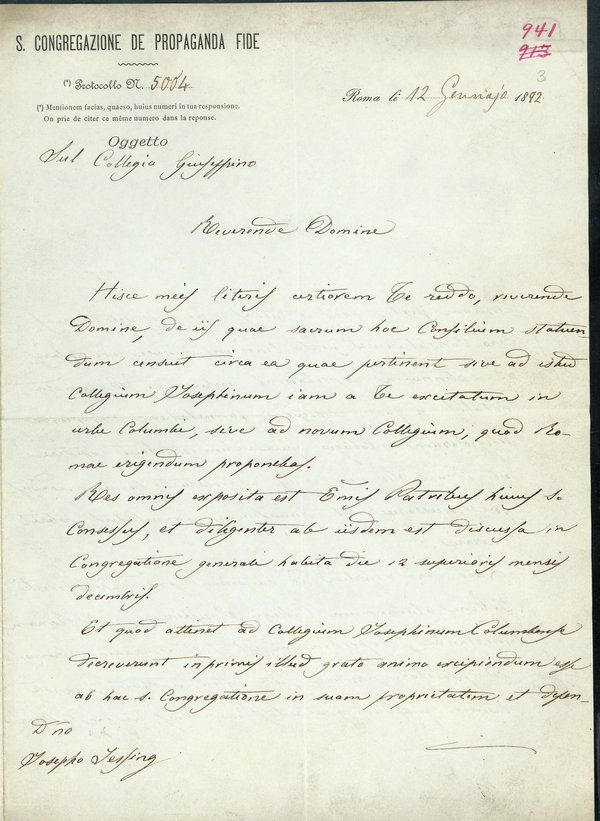 941
913
3
S. CONGREGAZIONE DE PROPAGANDA FIDE
(*) Protocollo N. 5004
(*) Mentionem facias, quaeso, huius numeri in tua responsione.
On prie de citer ce même numero dans la reponse.
Roma li 12 Gennajo 1892
Oggetto
Sul Collegio Giuseppino
Reverende Domine
Hisce meis literis certiorem Te reddo, reverende
Domine, de iis quae sacrum hoc Consilium statuen-
dum censuit circa ea quae pertinent sive ad istud
Collegium Josephinum iam a Te excitatum in
urbe Columbi, sive ad novum Collegium, quod Ro-
mae erigendum proponebas.
Res omnis exposita est Emis Patribus huius S.
Consessus, et diligenter ab iisdem est discussa in
Congregatione generali habita die 12 superioris mensis
decembris.
Et quod attinet ad Collegium Josephinum Columbense
decreverunt in primis illud grato animo excipiendum esse
ab hac S. Congregatione in suam proprietatem et
Dno
Josepho Jessing